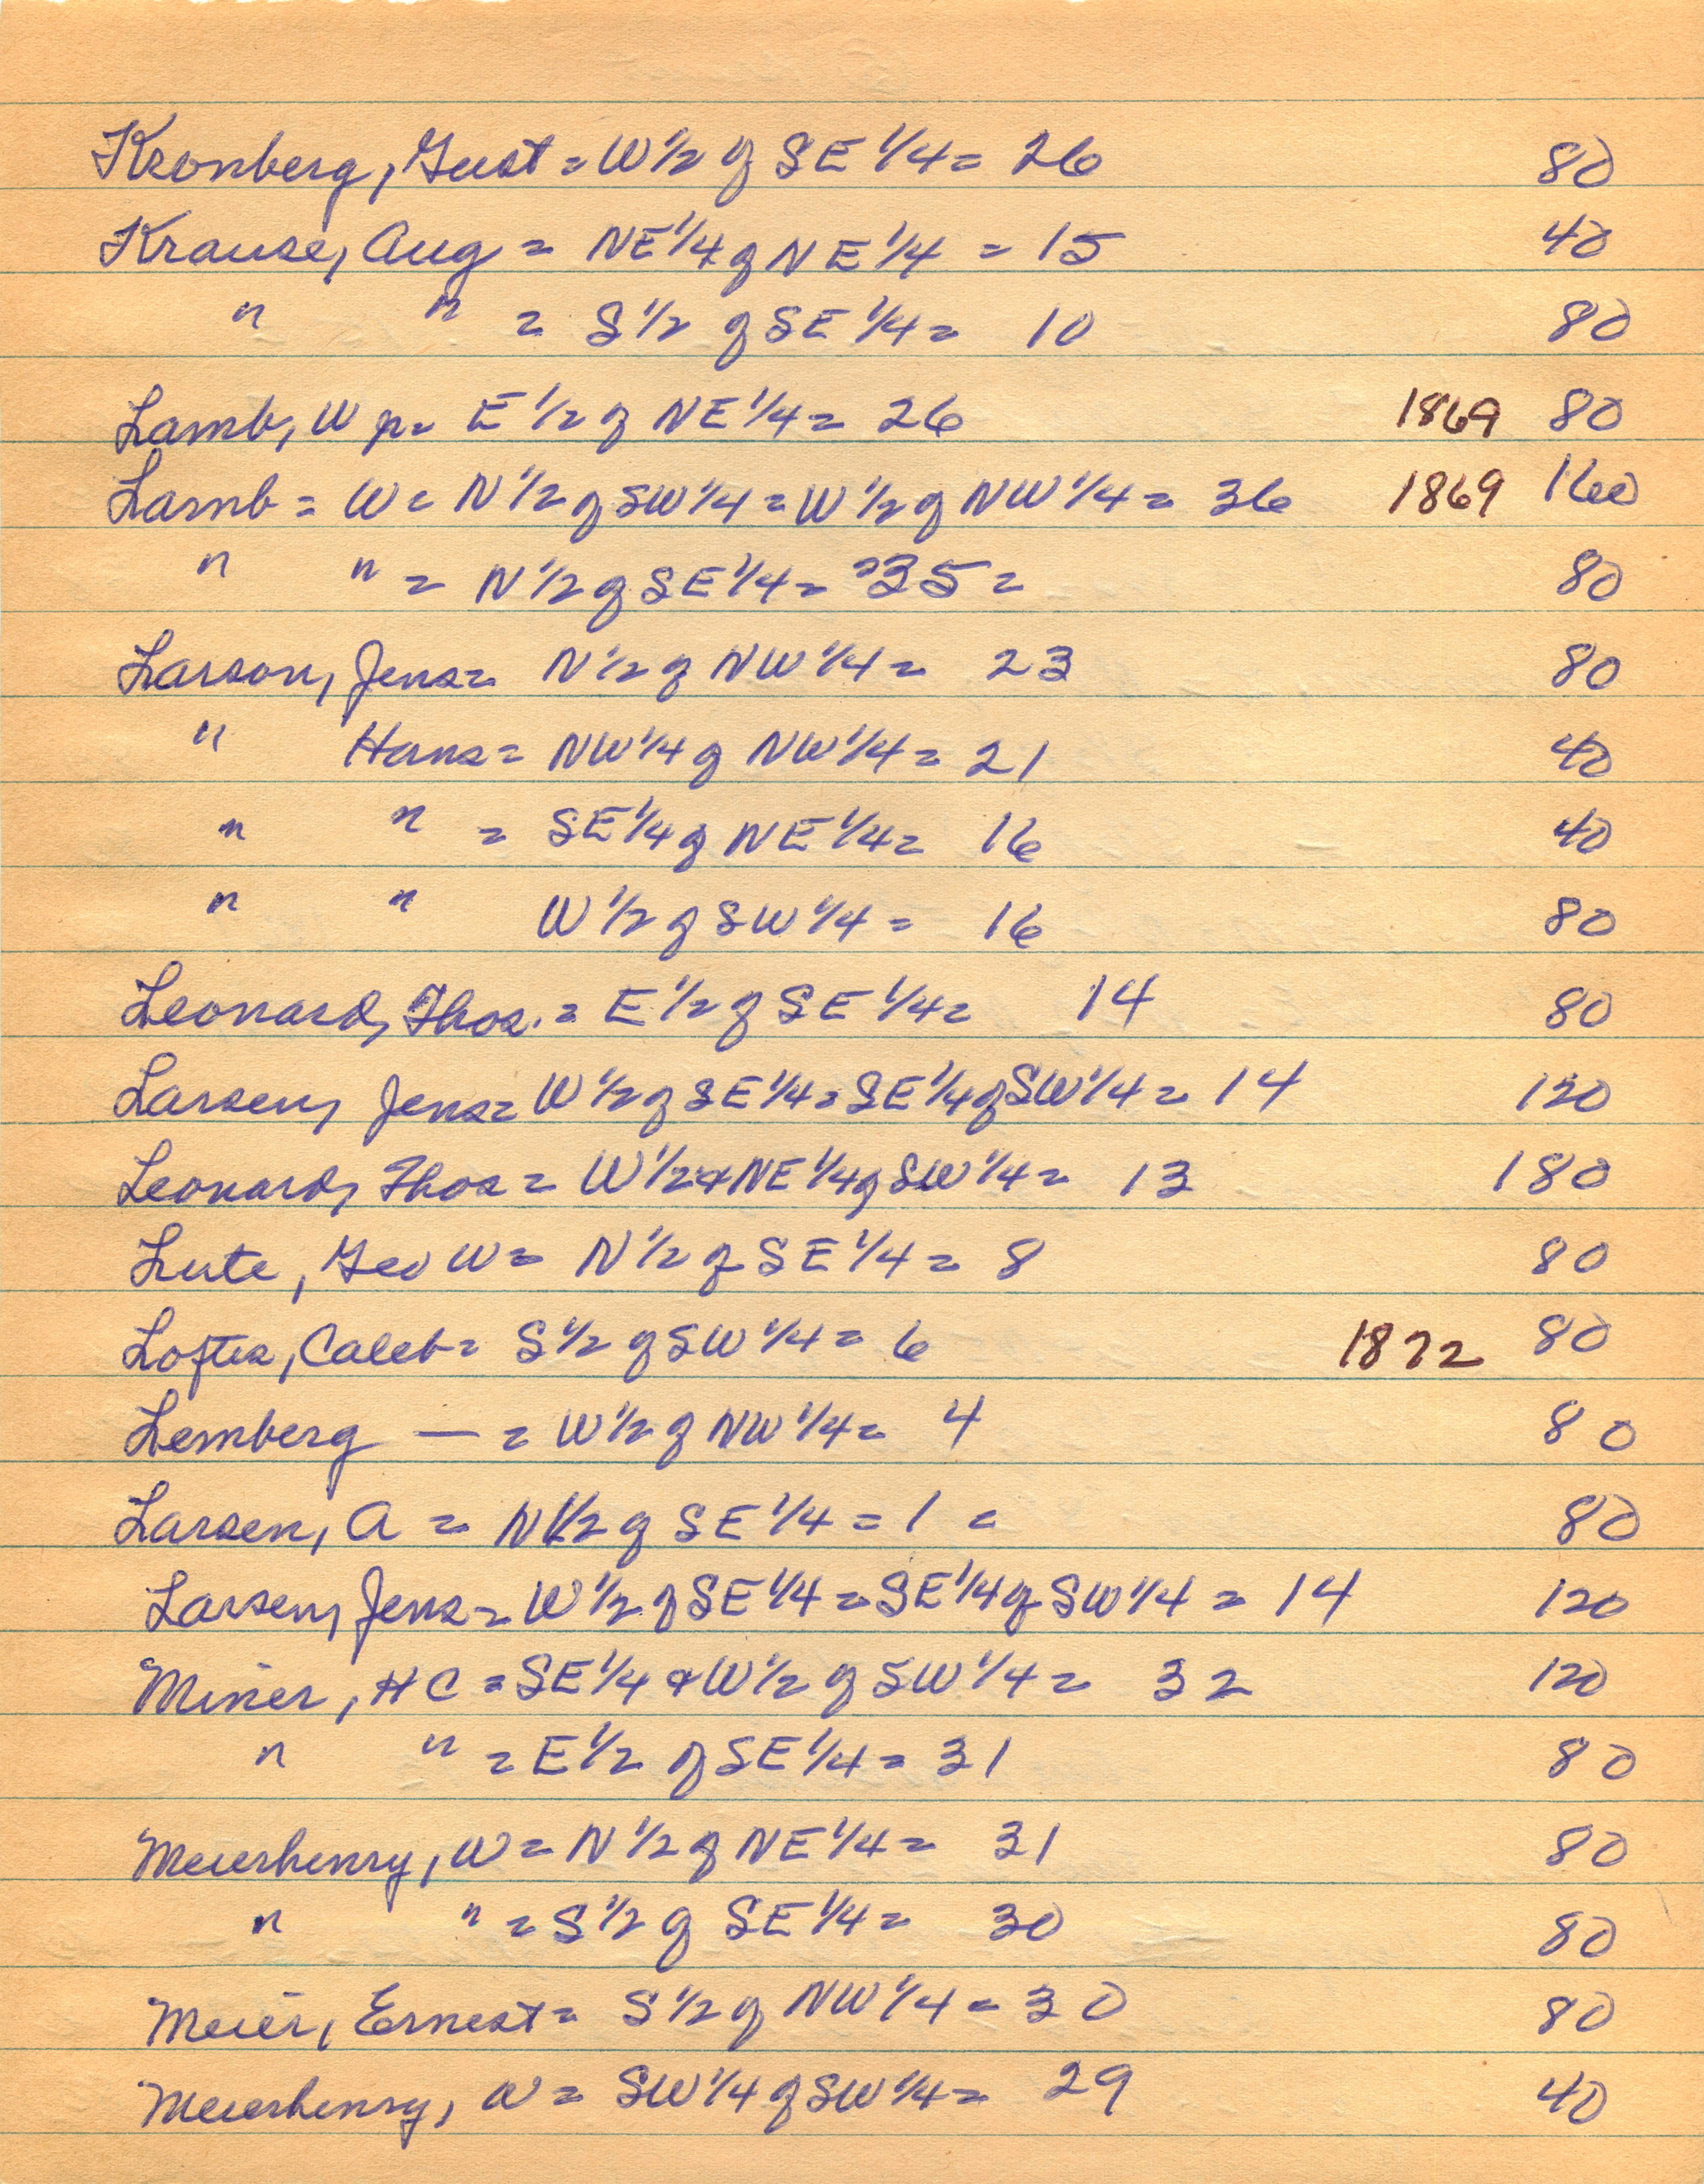 Kronberg, Gust = W 1/2 of SE 1/4 = 26 80
Krause, Aug = NE 1/4 of NE 1/4 = 15 40
" " = S 1/2 of SE 1/4 = 10 80
Lamb, W = E 1/2 of NE 1/4 = 26 1869 80
Lamb = W = N 1/2 of SW 1/4 = W 1/2 of NW 1/4 = 36 1869 160
" " = N 1/2 of SE 1/4 = 35 = 80
Larson, Jens = N 1/2 of NW 1/4 = 23 80
" Hans = NW 1/4 of NW 1/4 = 21 40
" " = SE 1/4 of NE 1/4 = 16 40
" " W 1/2 of SW 1/4 = 16 80
Leonard, Thos. = E 1/2 of SE 1/4 = 14 80
Larsen, Jens = W 1/2 of SE 1/4 = SE 1/4 of SW 1/4 = 14 120
Leonard, Thos = W 1/2 & NE 1/4 of SW 1/4 = 13 180
Lute, Geo W = N 1/2 of SE 1/4 = 8 80
Loftis, Caleb = S 1/2 of SW 1/4 = 6 1872 80
Lemberg — = W 1/2 of NW 1/4 = 4 80
Larsen, A = N 1/2 of SE 1/4 = 1 = 80
Larsen, Jens = W 1/2 of SE 1/4 = SE 1/4 of SW 1/4 = 14 120
Miner, H C = SE 1/4 & W 1/2 of SW 1/4 = 32 120
" " = E 1/2 of SE 1/4 = 31 80
Meierhenry, W = N 1/2 of NE 1/4 = 31 80
" " = S 1/2 of SE 1/4 = 30 80
Meier, Ernest = S 1/2 of NW 1/4 = 30 80
Meierhenry, W = SW 1/4 of SW 1/4 = 29 40